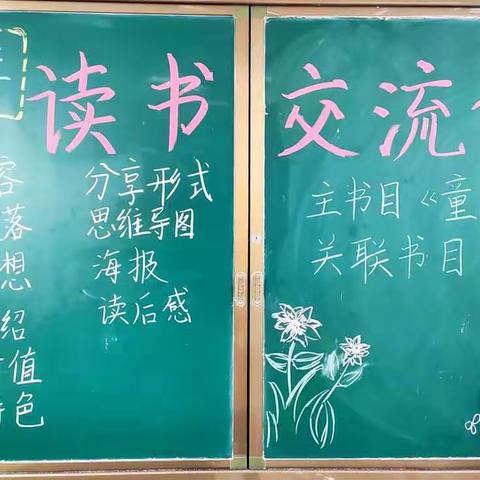 读书 交流
容
落
想
绍
值
特色
分享形式
思维导图
海报
读后感
主书目《童
关联书目